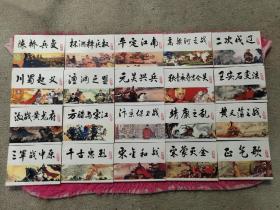 陈桥兵变
杯酒释兵权
平定江南
高梁河之战
二次战辽
川蜀起义
澶渊之盟
元昊兴兵
狄青夜夺昆仑关
王安石变法
激战黄龙府
方腊与宋江
汴京保卫战
靖康之乱
黄天荡之战
三军战中原
千古奇冤
宋金和战
宋蒙灭金
正气歌